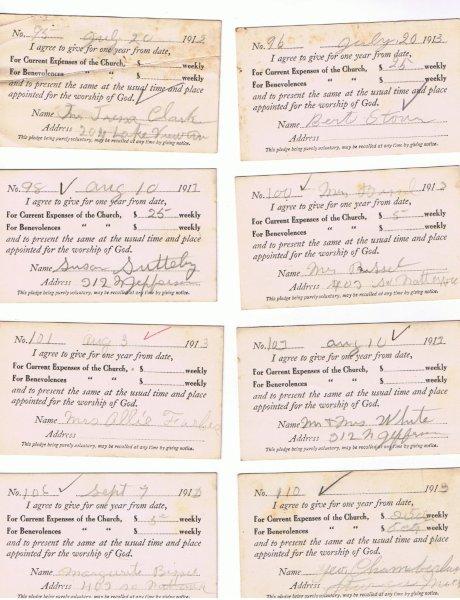 No. 95 July 20 1913
I agree to give for one year from date,
For Current Expenses of the Church, $ weekly
For Benevolences " " $ weekly
and to present the same at the usual time and place
appointed for the worship of God.
Name Mrs Clark
Address 204 Lake
This pledge being purely voluntary, may be recalled at any time by giving notice.
No. 96 July 20 1913
I agree to give for one year from date,
For Current Expenses of the Church, $ 25 weekly
For Benevolences " " $ weekly
and to present the same at the usual time and place
appointed for the worship of God.
Name Bert
Address
This pledge being purely voluntary, may be recalled at any time by giving notice.
No. 98 Aug 10 191
I agree to give for one year from date,
For Current Expenses of the Church, $ 25 weekly
For Benevolences " " $ weekly
and to present the same at the usual time and place
appointed for the worship of God.
Name Susan Sutteby
Address 212 N Jefferson
This pledge being purely voluntary, may be recalled at any time by giving notice.
No. 100 191
I agree to give for one year from date,
For Current Expenses of the Church, $ 5 weekly
For Benevolences " " $ weekly
and to present the same at the usual time and place
appointed for the worship of God.
Name Mrs
Address 403 So
This pledge being purely voluntary, may be recalled at any time by giving notice.
No. 101 Aug 3 1913
I agree to give for one year from date,
For Current Expenses of the Church, $ weekly
For Benevolences " " $ weekly
and to present the same at the usual time and place
appointed for the worship of God.
Name Mrs Allie
Address
This pledge being purely voluntary, may be recalled at any time by giving notice.
No. Aug 10 191
I agree to give for one year from date,
For Current Expenses of the Church, $ weekly
For Benevolences " " $ weekly
and to present the same at the usual time and place
appointed for the worship of God.
Name Mr & Mrs White
Address 312 N
This pledge being purely voluntary, may be recalled at any time by giving notice.
No. 106 Sept 7 191
I agree to give for one year from date,
For Current Expenses of the Church, $ weekly
For Benevolences " " $ weekly
and to present the same at the usual time and place
appointed for the worship of God.
Name Marguerite
Address 403 So
No. 110 1913
I agree to give for one year from date,
For Current Expenses of the Church, $ weekly
For Benevolences " " $ weekly
and to present the same at the usual time and place
appointed for the worship of God.
Name Geo Chamberlain
Address